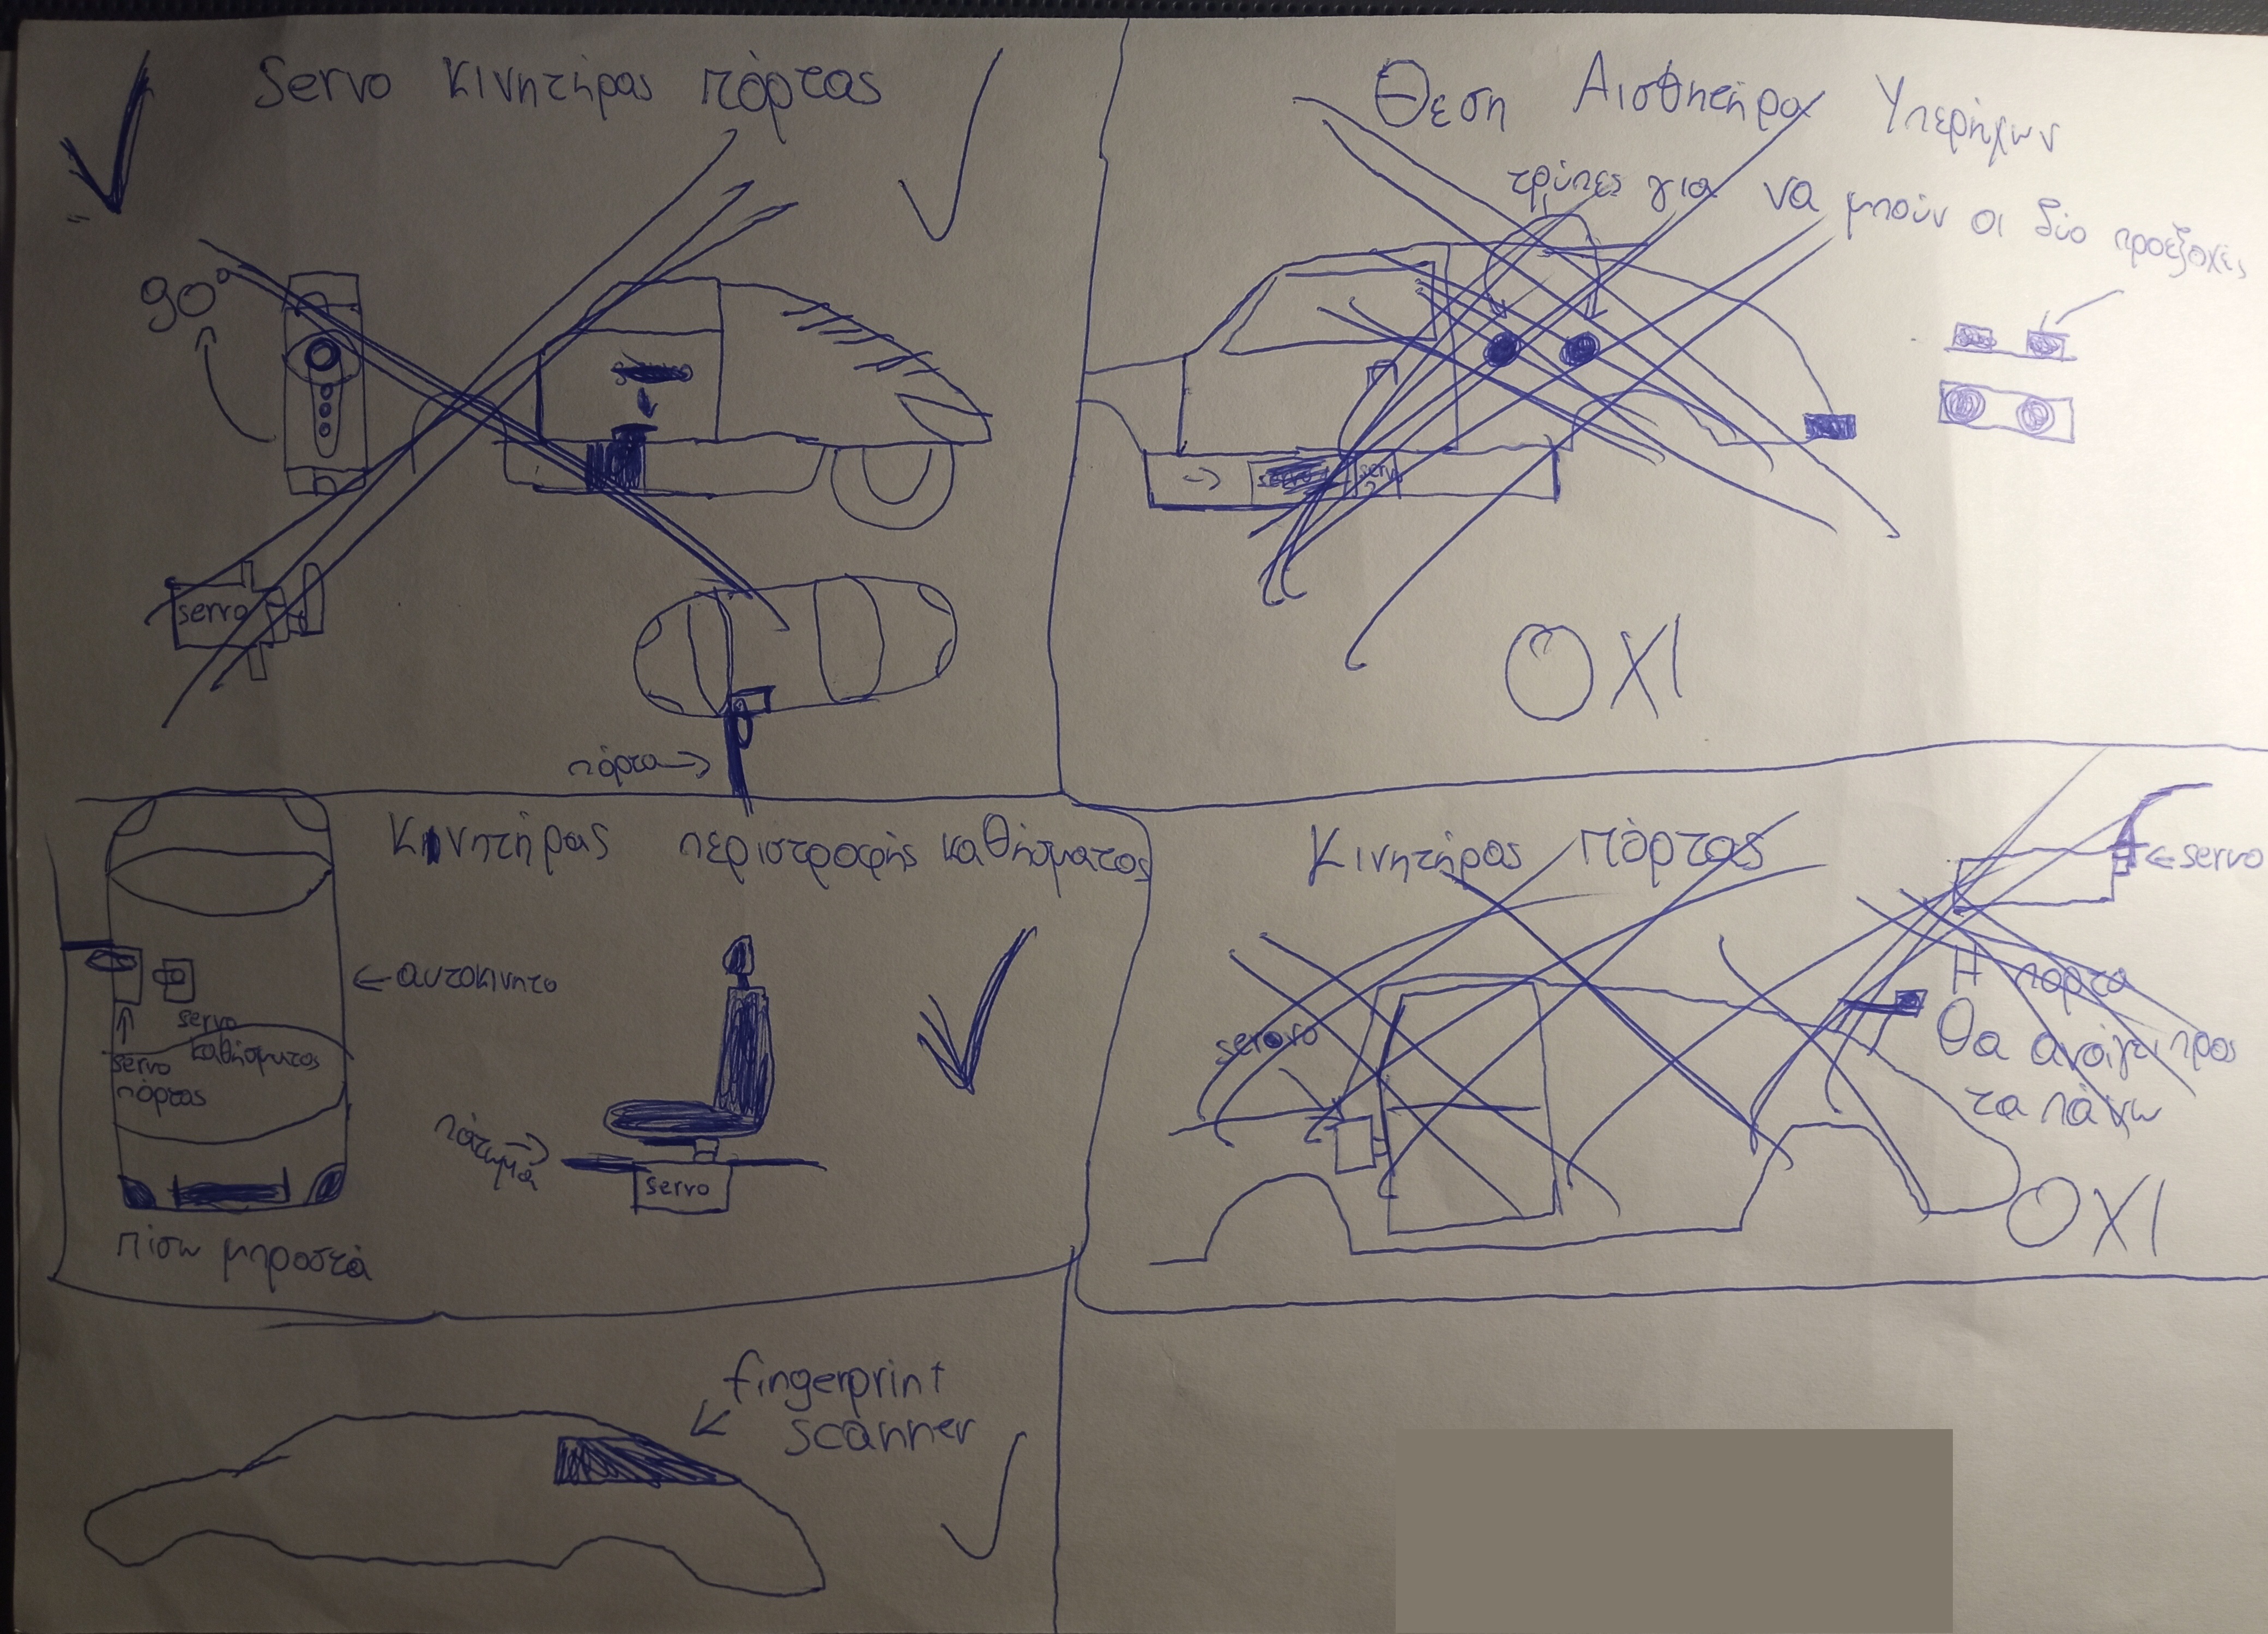 Servo κινητήρας πόρτας
90°
servo
πόρτα
Θεση Αισθητήρα Υπερήχων
τρύπες για να μπούν οι δύο προεξοχές
servo 2
ΟΧΙ
Κινητήρας περιστροφής καθήσματος
αυτοκινητο
servo καθήσματος
servo πόρτας
πάτωμα
servo
πίσω μπροστά
Κινητήρας πόρτας
servo
servo
Η πόρτα
θα ανοίγει προς
τα πάνω
ΟΧΙ
fingerprint
scanner